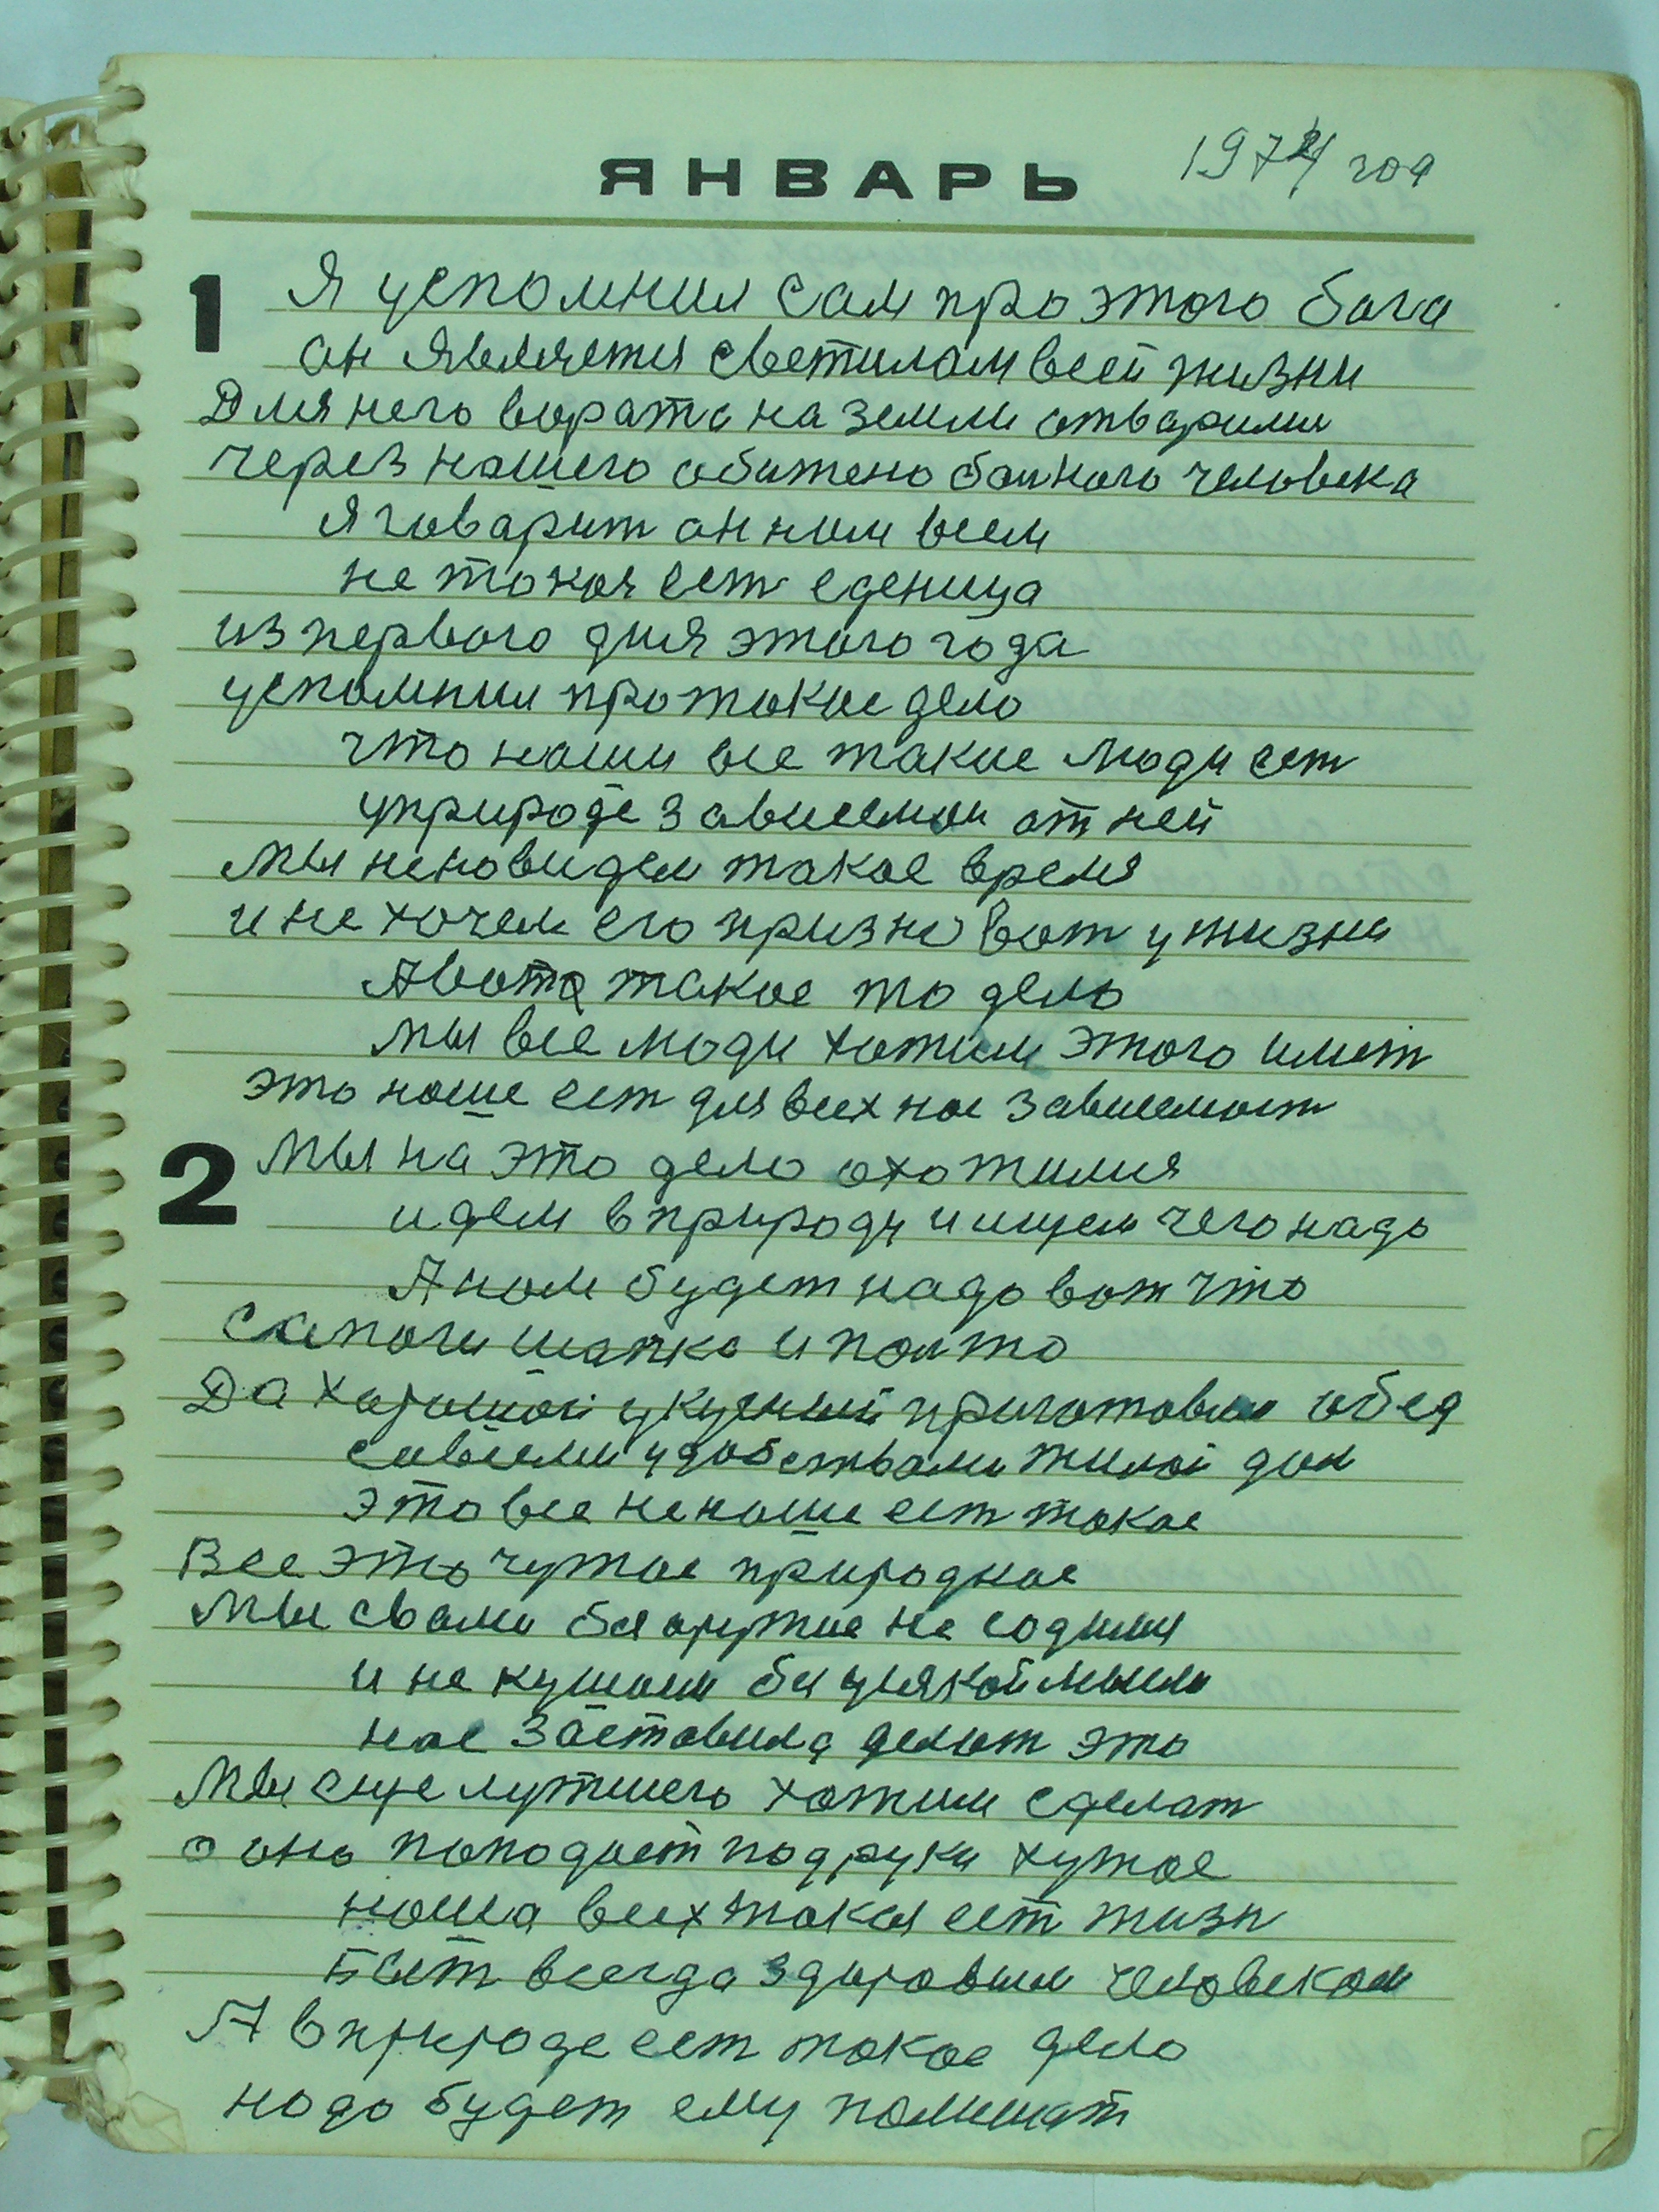 ЯНВАРЬ 1974 год
1 Я успомнил сам про этого бага
он Является светилам всей жизни
Для него врата на земли отварили
через нашего обижено больного человека
Я говарит он нам всем
не такая ест еденица
из первого дня этого года
успомнил про такое дело
что наши все такие люди ест
уприроде зависемои от ней
Мы неновидем такое время
и не хочем его призноват у жизни
А вот такое то дело
мы все люди хотим этого имет
это наше ест для всех нас зависемост
2 Мы на это дело охотилися
идем в природу и ищем чего надо
А нам будет надо вот что
сапоги шапка и полто
Да харошой укусный приготовил обед
совсеми удобствами жилой дом
это все не наше ест такое
Все это чужое природное
Мы с вами бы оружие не
и не кушали бы усякой мыла
нас заставила делат это
Мы еще лутшего хотим сделат
а оно пападает под руки хужое
наша всех такая ест жизн
Быт всегда здоровым человеком
А в природе ест такое дело
надо будет ему помешат